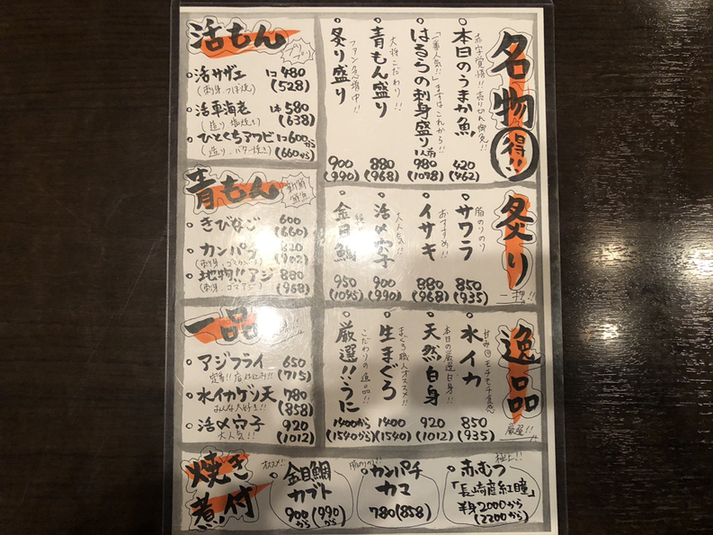 名物
得!!
本日のうまか魚
赤字覚悟!!売り切れ御免!!
420
(462)
はるらの刺身盛り
一番人気!!まずはこれから!!
1人前
980
(1078)
青もん盛り
大将こだわり!!
880
(968)
炙り盛り
ファン急増中!!
900
(990)
活もん
プリプリ
活サザエ 1コ 480
(刺身、つぼ焼き) (528)
活車海老 1本 580
(造り、塩焼き) (638)
ひとくちアワビ 1コ 600から
(造り、バター焼き) (660から)
炙り
サワラ
脂のりのり
850
(935)
イサキ
おすすめ!!
880
(968)
活〆穴子
大人気!!
900
(990)
金目鯛
950
(1045)
青もん
新鮮
きびなご 600
(660)
カンパチ 820
(902)
地物!!アジ 880
(刺身、ゴマアジ) (968)
逸品
厳選!!
水イカ
甘み◎モチモチ食感
850
(935)
天然白身
本日の厳選白身!!
920
(1012)
生まぐろ
まぐろ職人オススメ!!
1400
(1540)
厳選!!うに
こだわりの逸品!!
1400から
(1540から)
一品
アジフライ 650
(715)
水イカゲソ天 780
みんな大好き!! (858)
活〆穴子 920
大人気!! (1012)
焼き
煮付
赤むつ
「長崎産紅瞳」
半身2000から
(2200から)
カンパチ
カマ
780(858)
オススメ!!
金目鯛
カブト
900から (990から)